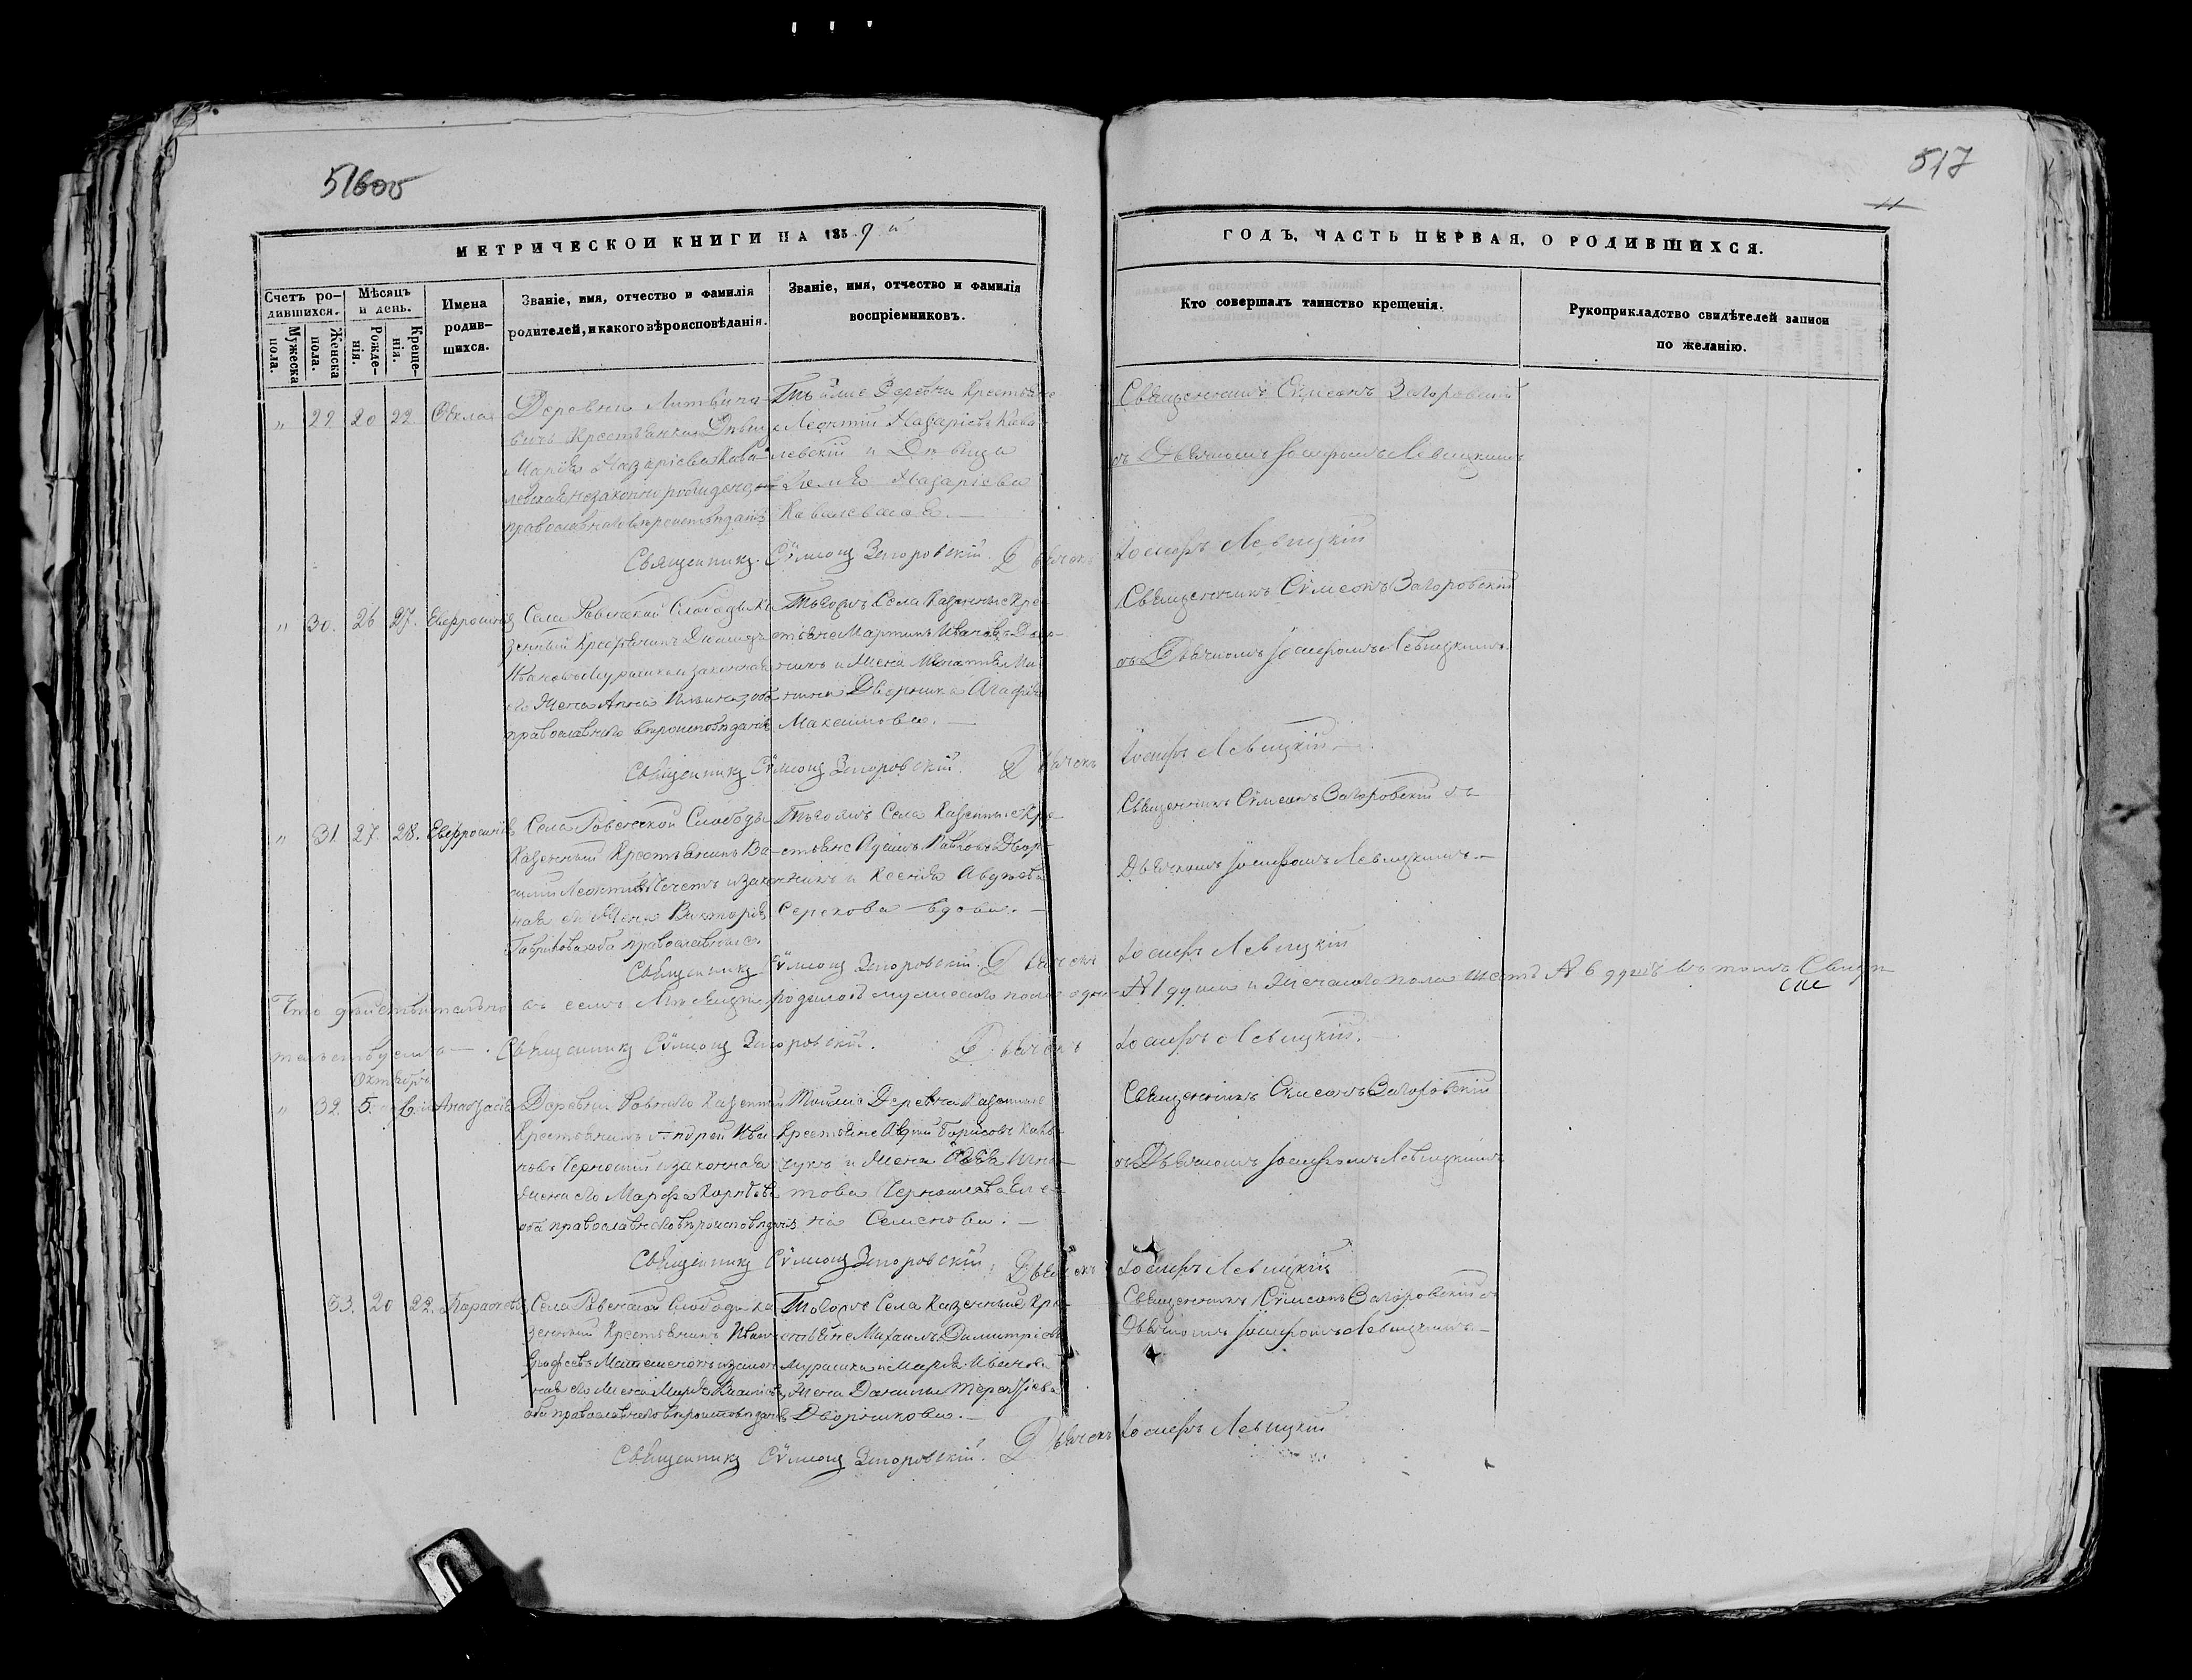 516об
517
11
МЕТРИЧЕСКОЙ КНИГИ НА 1859й
ГОДЪ, ЧАСТЬ ПЕРВАЯ, О РОДИВШИХСЯ.
Счетъ родившихся.
Мужеска пола.
Женска пола.
Мѣсяцъ и день.
Рожденія.
Крещенія.
Имена родившихся.
Званіе, имя, отчество и фамилія
родителей, и какого вѣроисповѣданія.
Званіе, имя, отчество и фамилія
воспріемниковъ.
Кто совершалъ таинство крещенія.
Рукоприкладство свидѣтелей записи
по желанію.
" 29 20 22. Ѳекла
Деревни
вичь Крестьянка Дѣвица
Марія Назаріева Кова-
левская незаконно
православнаго вѣроисповѣданія
Тойже Деревни Крестьяне
Леонтій Назаріевъ Кова-
левскій и Дѣвица
Назаріева
Ковалевская. —
Священникъ Сѵмеонъ Загоровскій
съ Дьячкомъ Іосифомъ Левицкимъ
Священникъ Сѵмеонъ Загоровскій. Дьячокъ Іосифъ Левицкій
" 30. 26 27. Евфросинія
Села Ровенской Слободы Ка-
зенный Крестьянинъ
Ивановъ Мурашко и законная
его Жена Анна оба
православнаго вѣроисповѣданія
Тогожъ Села Казенные Кре-
стьяне Мартинъ Ивановъ Двор-
никъ и Жена
Дворника Агафія
Максимова. —
Священникъ Сѵмеонъ Загоровскій
съ Дьячкомъ Іосифомъ Левицкимъ.
Священникъ Сѵмеонъ Загоровскій. Дьячокъ Іосифъ Левицкій.
" 31 27 28. Евфросинія
Села Ровенской Слободы
Казенный Крестьянинъ Ва-
силій и закон-
ная его Жена
оба православные.
Тогожъ Села Казенные Кре-
стьяне Павловъ Двор-
никъ и Ксенія
вдова. —
Священникъ Сѵмеонъ Загоровскій съ
Дьячкомъ Іосифомъ Левицкимъ. —
Священникъ Сѵмеонъ Загоровскій. Дьячокъ Іосифъ Левицкій
Что дѣйствительно въ семъ Мѣсяцѣ родилось мужескаго пола одна № 1 душа и Женскаго пола шесть № 6 душъ въ томъ Свидѣ-
тельствуемъ —. Священникъ Сѵмеонъ Загоровскій. Дьячокъ Іосифъ Левицкій.
Октябрь
" 32. 5. 6. Анастасія
Деревни Казенный
Крестьянинъ Андрей Ива-
новъ и законная
Жена его Марфа
оба православнаго вѣроисповѣданія
Тойже Деревни Казенные
Крестьяне Борисовъ
и Жена
Семенова. —
Священникъ Сѵмеонъ Загоровскій
съ Дьячкомъ Іосифомъ Левицкимъ
Священникъ Сѵмеонъ Загоровскій. Дьячокъ Іосифъ Левицкій
33. 20 22. Параскева
Села Ровенской Слободы Ка-
зенный Крестьянинъ Иванъ
и закон-
ная его Жена Марія
оба православнаго вѣроисповѣданія
Тогожъ Села Казенные Кре-
стьяне Михаилъ Димитріевъ
Мурашка и Марія Иванова
Жена Даніила Терентіева
Дворникова. —
Священникъ Сѵмеонъ Загоровскій съ
Дьячкомъ Іосифомъ Левицкимъ. —
Священникъ Сѵмеонъ Загоровскій. Дьячокъ Іосифъ Левицкій